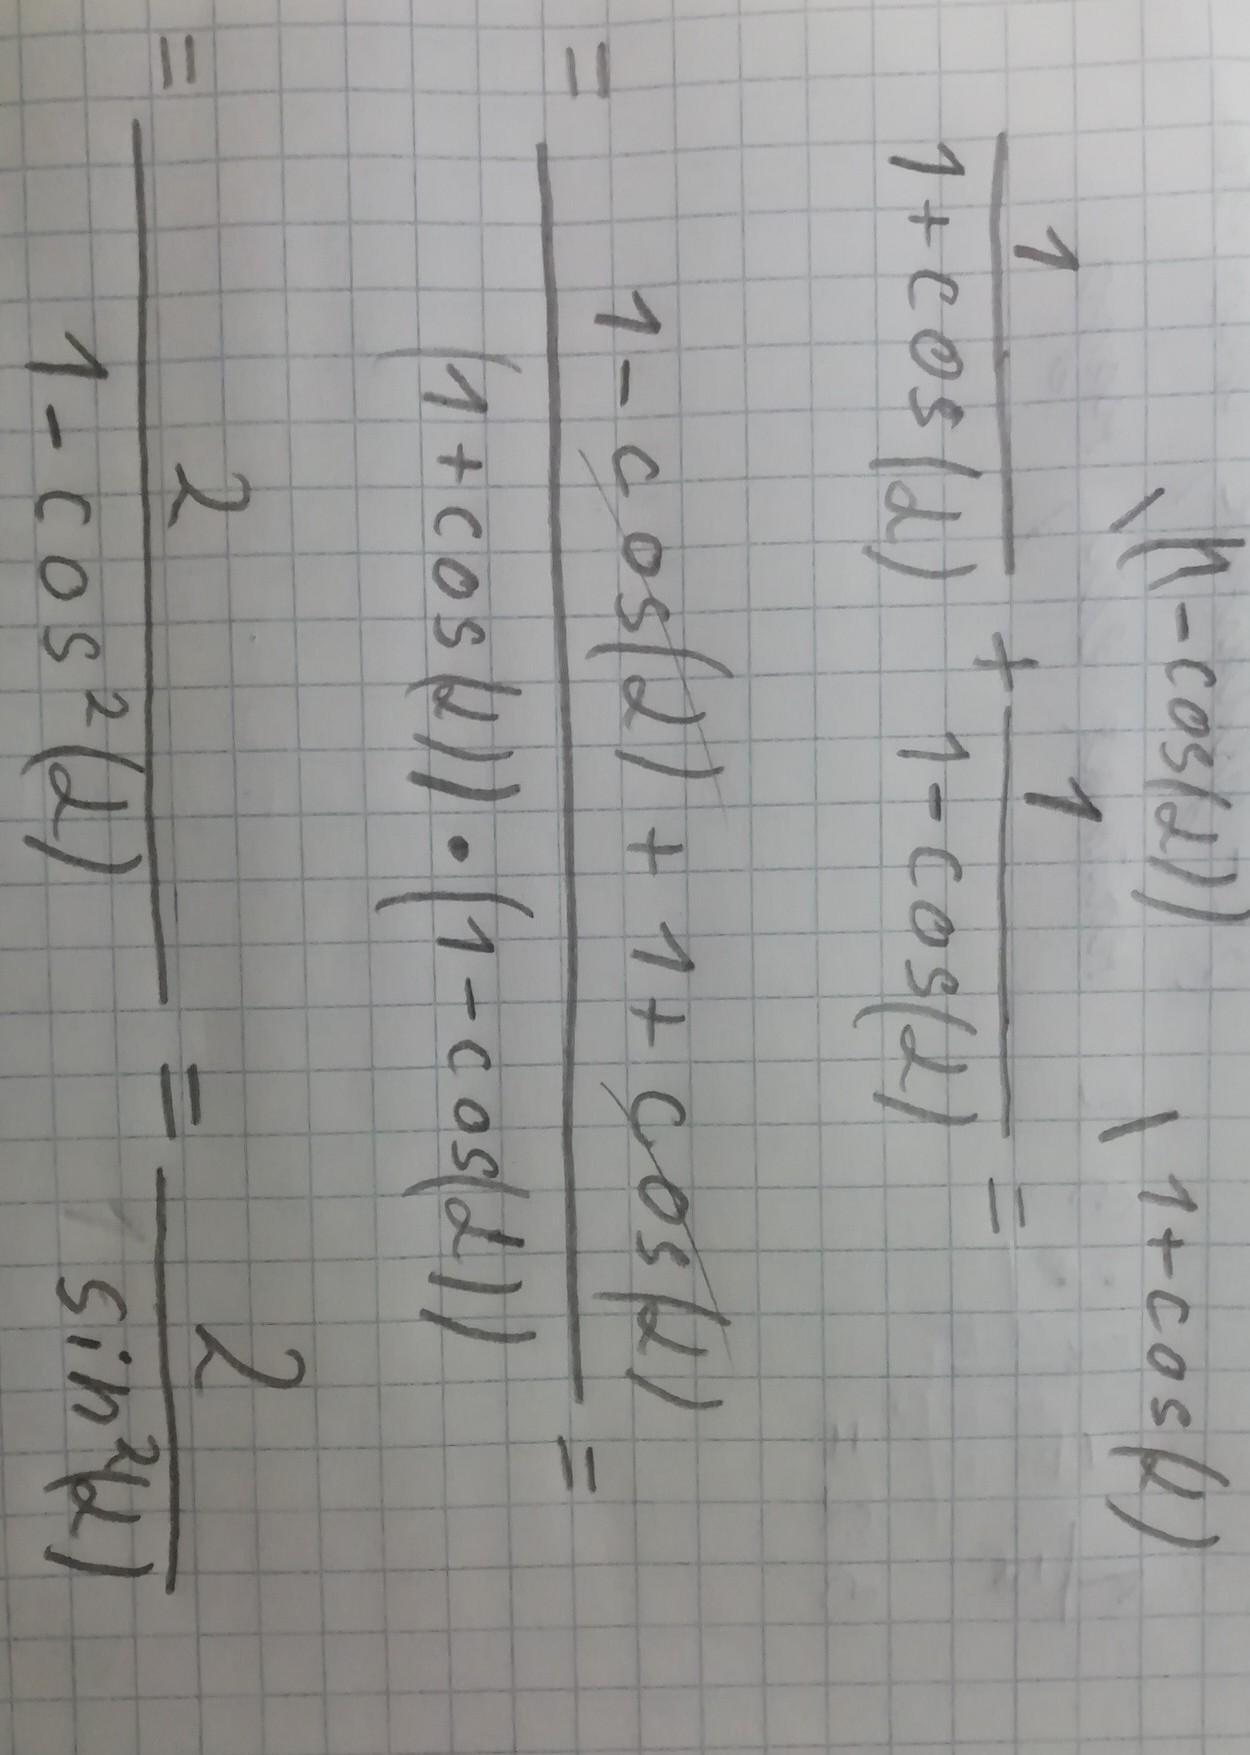 \(1-cos(α)) \1+cos(α)
1/(1+cos(α)) + 1/(1-cos(α)) =
= (1-cos(α)+1+cos(α))/((1+cos(α))·(1-cos(α))) =
= 2/(1-cos²(α)) = 2/sin²(α)